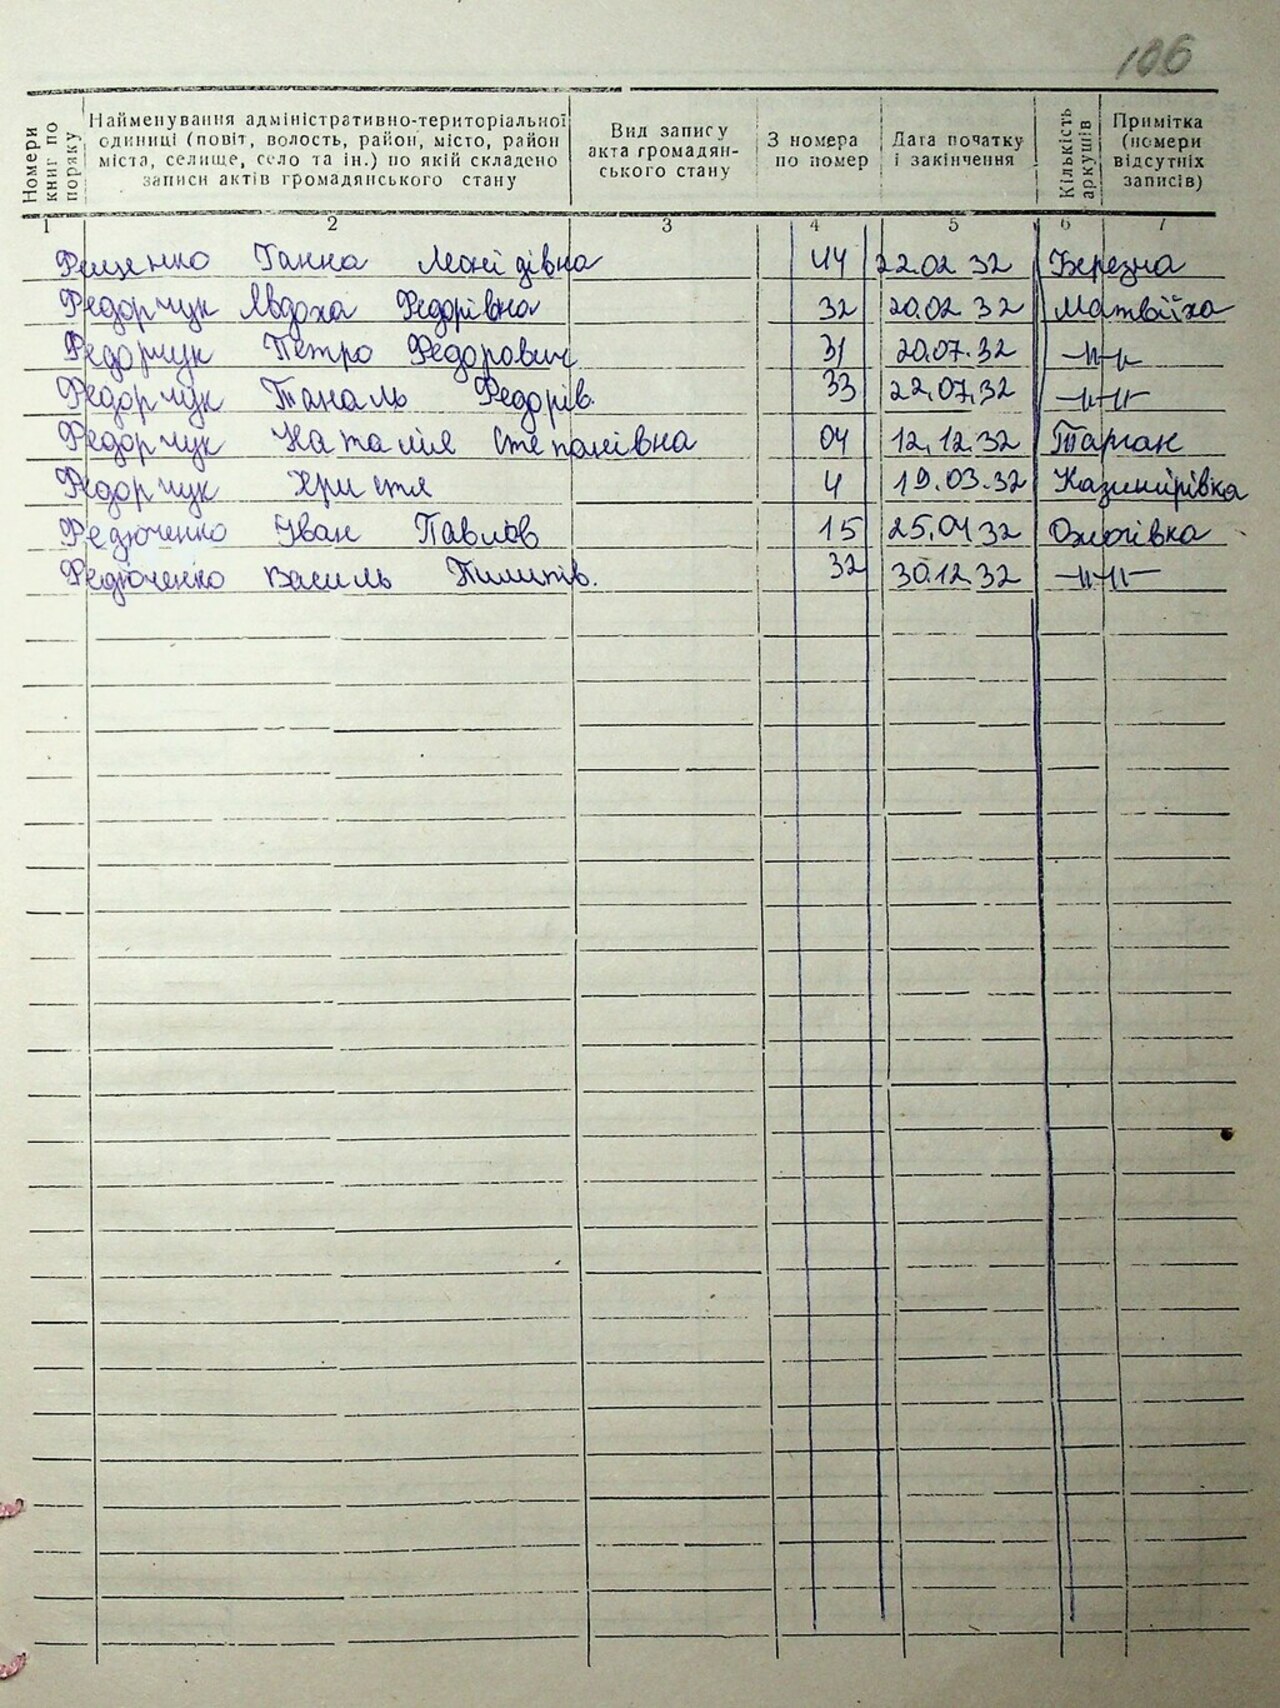 106
Номери книг по поряку
Найменування адміністративно-територіальної одиниці (повіт, волость, район, місто, район міста, селище, село та ін.) по якій складено записи актів громадянського стану
Вид запису акта громадян-ського стану
З номера по номер
Дата початку і закінчення
Кількість аркушів
Примітка (номери відсутніх записів)
1 2 3 4 5 6 7
Фещенко Ганна Леонідівна 44 22.02 32 Березна
Федорчук Явдоха Федорівна 32 20.02 32 Матвіїха
Федорчук Петро Федорович 31 20.07.32 -"-"-
Федорчук Таналь Федорів. 33 22.07.32 -"-"-
Федорчук Наталія Степанівна 04 12.12.32 Тарган
Федорчук Христя 4 19.03.32 Казимірівка
Федюченко Іван Павлов 15 25.04 32 Ожогівка
Федюченко Василь Пилипів. 32 30.12.32 -"-"-